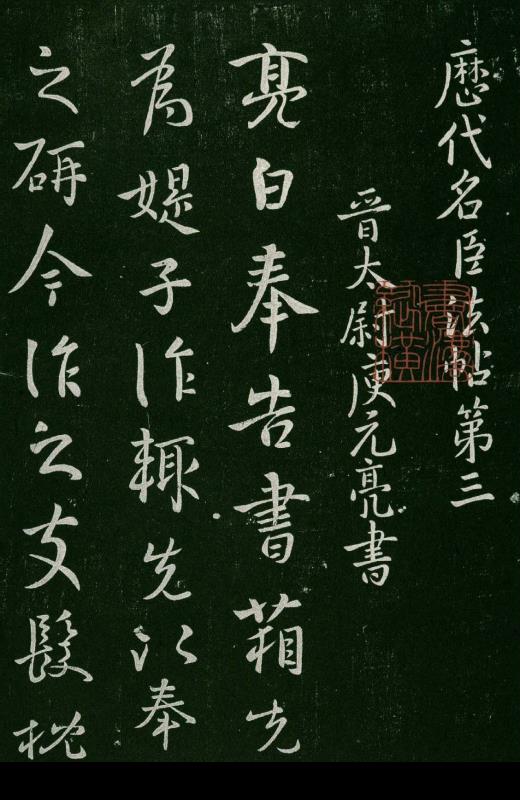 歷代名臣法帖第三
晉太尉庾元亮書
亮白奉告書箱先
為媞子作輙先以奉
之研今作之支髮枕